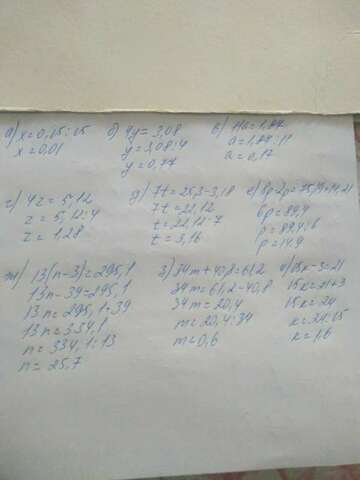 а) x=0,15:15
x=0,01
б) 4y=3,08
y=3,08:4
y=0,77
в) 11a=1,87
a=1,87:11
a=0,17
г) 4z=5,12
z=5,12:4
z=1,28
д) 7t=25,3-3,18
7t=22,12
t=22,12:7
t=3,16
p=89,4:6
p=14,9
ж) 13(n-3)=295,1
13n-39=295,1
13n=295,1+39
13n=334,1
n=334,1:13
n=25,7
з) 34m+40,8=61,2
34m=61,2-40,8
34m=20,4
m=20,4:34
m=0,6
и) 15k-3=21
15k=21+3
15k=24
k=24:15
k=1,6